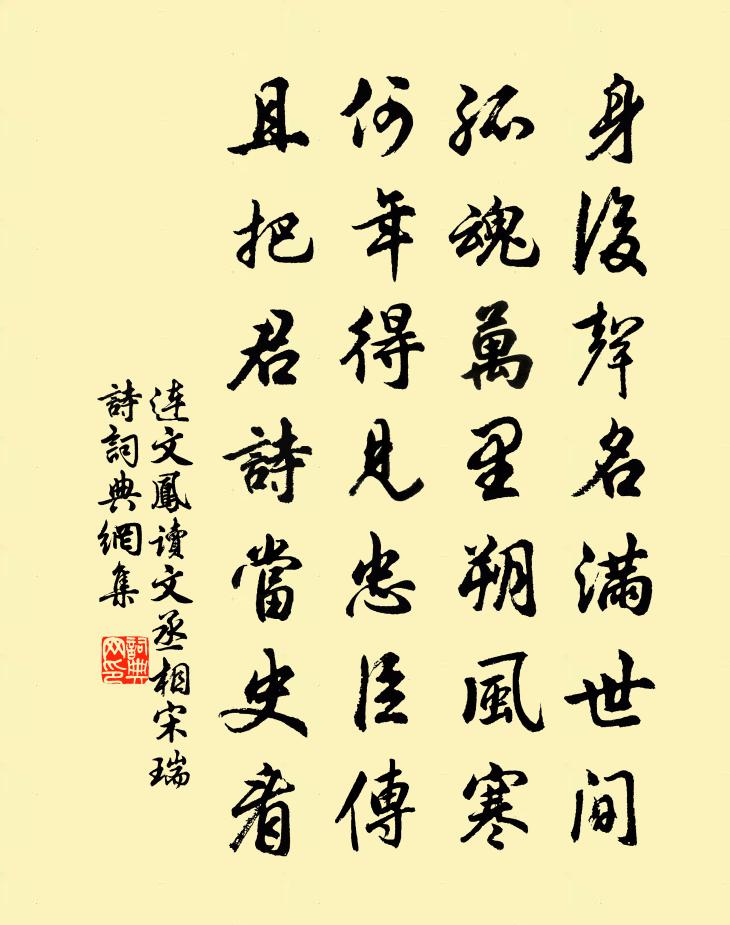 身後聲名满世间
孤魂萬里朔風寒
何年得見忠臣傳
且把君詩當史看
连文鳳读文丞相宋瑞
詩詞典網集
詞典网印